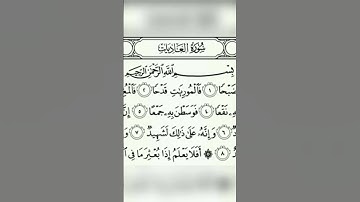 سُورَةُ العَادِيَاتِ
بِسْمِ ٱللَّهِ ٱلرَّحْمَٰنِ ٱلرَّحِيمِ
ضَبْحًا ١ فَٱلْمُورِيَٰتِ قَدْحًا ٢
بِهِۦ نَقْعًا ٤ فَوَسَطْنَ بِهِۦ جَمْعًا ٥ إِنَّ
٦ وَإِنَّهُۥ عَلَىٰ ذَٰلِكَ لَشَهِيدٌ ٧
٨ ۞ أَفَلَا يَعْلَمُ إِذَا بُعْثِرَ مَا فِي